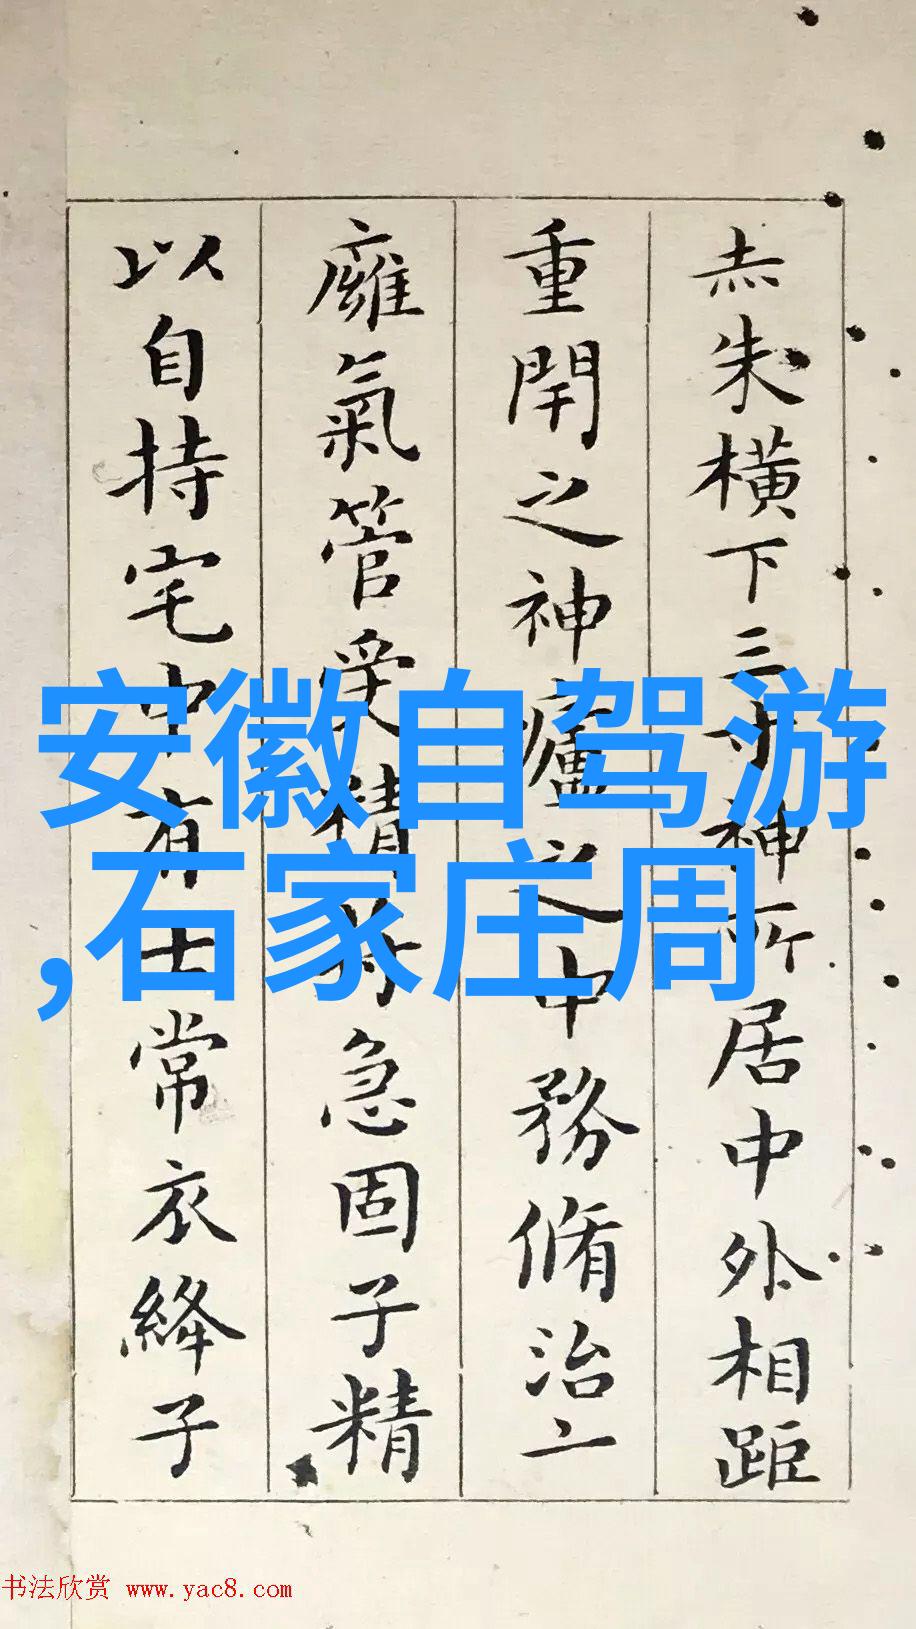 安徽自驾游
,石家庄周
赤朱橫下三寸神所居中外相距
重閇之神廬之中務脩治
廱氣管受精符急固子精
以自持宅中有士常衣絳子
书法欣赏 www.yac8.com